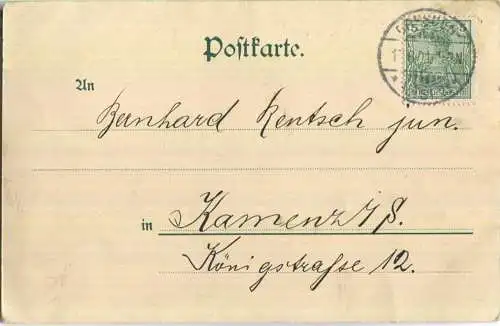 Postkarte.
An
Bernhard Rentsch jun.
in Kamenz i/S.
Königstraße 12.